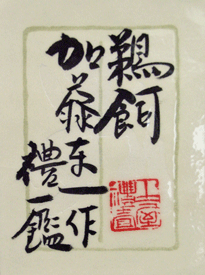 鵜飼
加藤東一作
禮一鑑